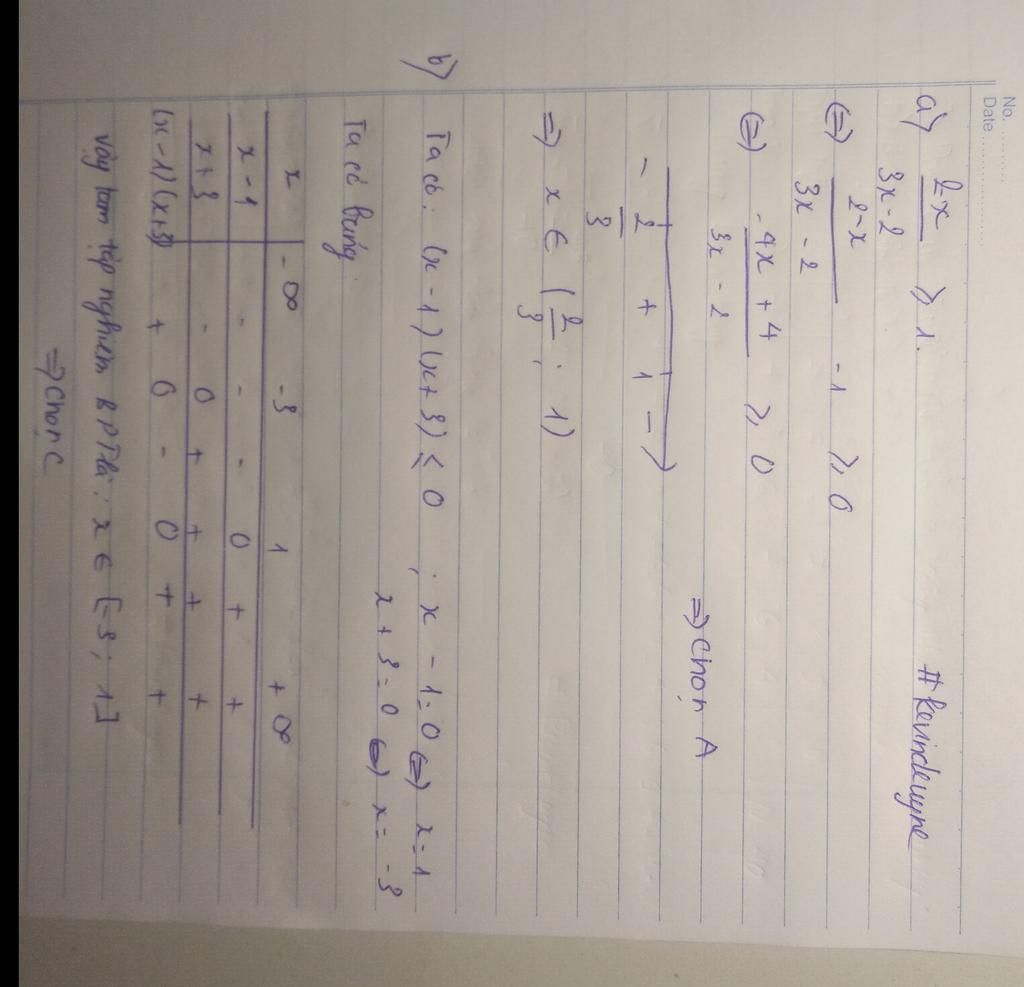 No.
Date
a) (2-x)/(3x-2) ≥ 1. #kevindeuyne
(=) (2-x)/(3x-2) - 1 ≥ 0
(=) (-4x+4)/(3x-2) ≥ 0
=) Chọn A
- 2/3 + 1 -
=) x ∈ (2/3; 1)
b) Ta có: (x-1)(x+3) ≤ 0; x-1=0 (=) x=1
x+3=0 (=) x=-3
Ta có bảng:
x -∞ -3 1 +∞
x-1 - - - 0 + +
x+3 - 0 + + + +
(x-1)(x+3) + 0 - 0 + +
Vậy tập nghiệm BPT là: x ∈ [-3; 1]
=) Chọn C